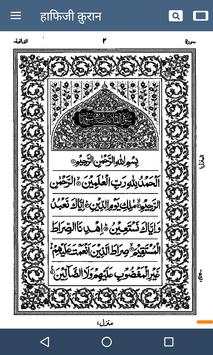 हाफिजी क़ुरान
٢
بِسْمِ اللّٰهِ الرَّحْمٰنِ الرَّحِيْمِ
اَلْحَمْدُ لِلّٰهِ رَبِّ الْعٰلَمِيْنَ الرَّحْمٰنِ
الرَّحِيْمِ مٰلِكِ يَوْمِ الدِّيْنِ اِيَّاكَ نَعْبُدُ
وَاِيَّاكَ نَسْتَعِيْنُ اِهْدِنَا الصِّرَاطَ
الْمُسْتَقِيْمَ صِرَاطَ الَّذِيْنَ اَنْعَمْتَ عَلَيْهِمْ
غَيْرِ الْمَغْضُوْبِ عَلَيْهِمْ وَلَا الضَّآلِّيْنَ